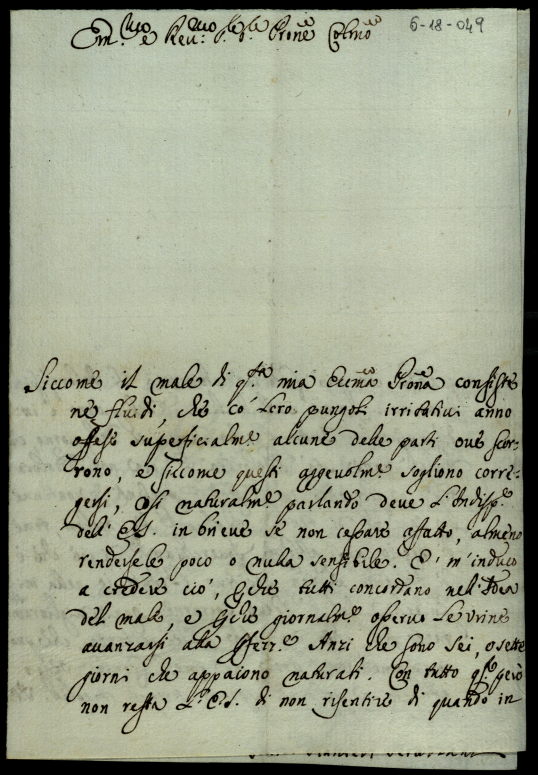 Em.mo e Rev.mo Pre. Prone Colmo
6-18-049
Siccome il male di q.ta mia Eccma Prona consiste
ne fluidi, che co' Loro pungoli irritativi anno
offeso superficialm.e alcune delle parti ove scor-
rono, e siccome questi aggevolm.e sogliono corre-
gersi, così naturalm.e parlando deve L'Indisp.e
dell' E.S. in brieve se non cessare affatto, almeno
rendersele poco o nulla sensibile. E' m'induco
a credere ciò, e che tutti concordano nell' Idea
del male, e che giornalm.e osservo Le Urine
avanzarsi alla Anzi che sono sei, o sette
giorni che appaiono naturali. Con tutto q.to però
non resta L'E.S. di non risentire di quando in